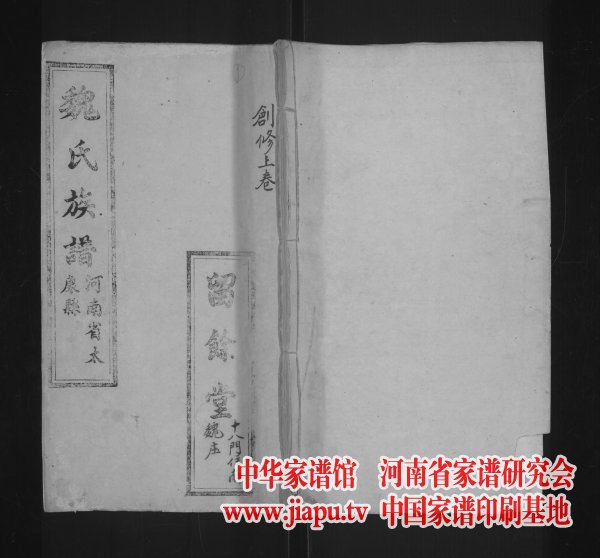 創修上卷
魏氏族譜
河南省太
康縣
留餘堂
十八門
魏庄
中华家谱馆 河南省家谱研究会
www.jiapu.tv 中国家谱印刷基地